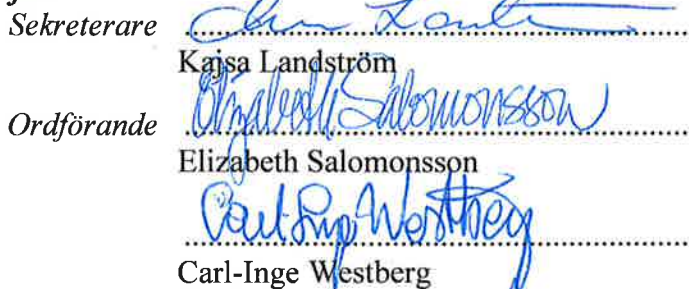 Sekreterare
Kajsa Landström
Elizabeth Salomonsson
Ordförande
Elizabeth Salomonsson
Carl-Inge Westberg
Carl-Inge Westberg